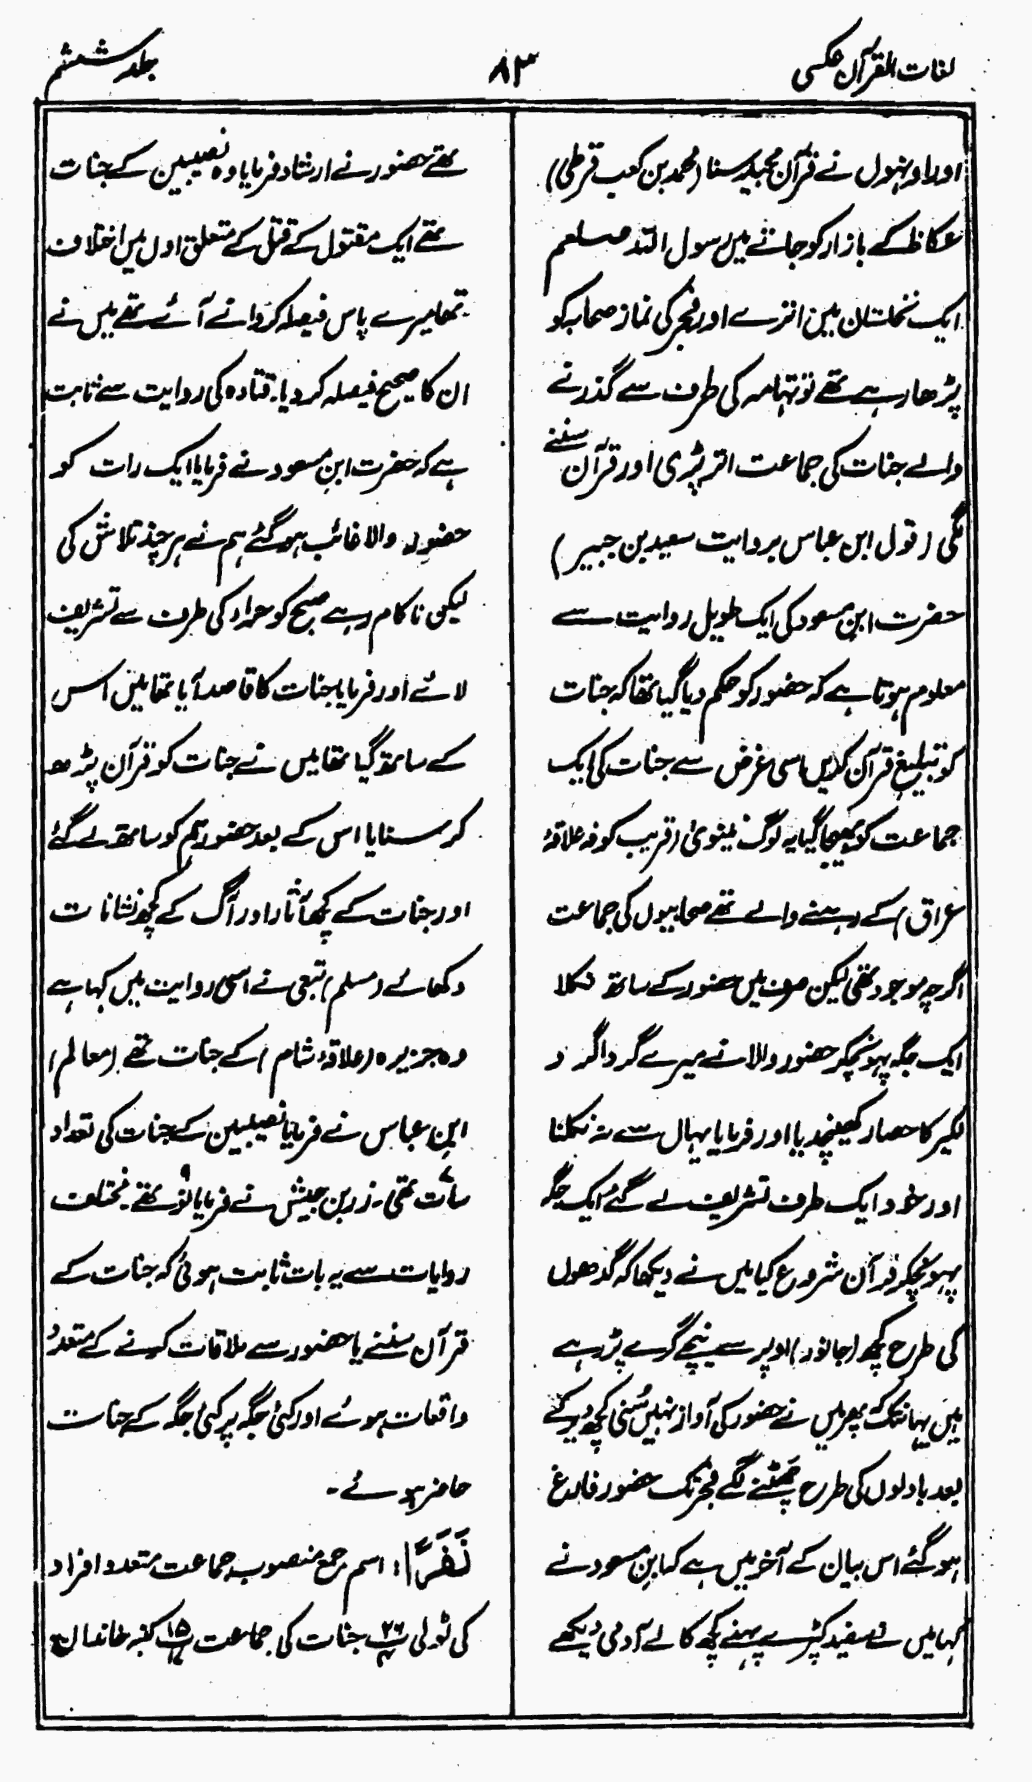 لغات القرآن عکسی
۸۳
جلد ششم
اور اونہوں نے قرآن مجید سنا (محمد بن کعب قرظی)
عکاظ کے بازار کو جاتے میں رسول اللہ صلعم
ایک نخلستان میں اترے اور فجر کی نماز صحابہ کو
پڑھا رہے تھے تو تہامہ کی طرف سے گذرنے
والے جنات کی جماعت اتر پڑی اور قرآن سننے
لگی (قول ابن عباس بروایت سعید بن جبیر)
حضرت ابن مسعود کی ایک طویل روایت سے
معلوم ہوتا ہے کہ حضور کو حکم دیا گیا تھا کہ جنات
کو تبلیغ قرآن کریں اسی غرض سے جنات کی ایک
جماعت کو بھیجا گیا یہ لوگ نینویٰ (قریب کوفہ علاقۂ
عراق) کے رہنے والے تھے صحابیوں کی جماعت
اگرچہ موجود تھی لیکن صرف میں حضور کے ساتھ نکلا
ایک جگہ پہونچکر حضور والا نے میرے گرداگرد
لکیر کا حصار کھینچدیا اور فرمایا یہاں سے نہ نکلنا
اور خود ایک طرف تشریف لے گئے ایک جگہ
پہونچکر قرآن شروع کیا میں نے دیکھا کہ گدھوں
کی طرح کچھ (جانور) اوپر سے نیچے گرے پڑ رہے
ہیں یہانتک کہ پھر میں نے حضور کی آواز نہیں سُنی کچھ دیر کے
بعد بادلوں کی طرح چَھٹنے لگے فجر تک حضور فارغ
ہو گئے اس بیان کے آخر میں ہے کہ ابن مسعود نے
کہا میں نے سفید کپڑے پہنے کچھ کالے آدمی دیکھے
تھے حضور نے ارشاد فرمایا وہ نصیبین کے جنات
تھے ایک مقتول کے قتل کے متعلق اول میں اختلاف
تھا میرے پاس فیصلہ کروانے آئے تھے میں نے
ان کا صحیح فیصلہ کر دیا۔ قتادہ کی روایت سے ثابت
ہے کہ حضرت ابن مسعود نے فرمایا ایک رات کو
حضور والا غائب ہو گئے ہم نے ہر چند تلاش کی
لیکن ناکام رہے صبح کو حراء کی طرف سے تشریف
لائے اور فرمایا جنات کا قاصد آیا تھا میں اس
کے ساتھ گیا تھا میں نے جنات کو قرآن پڑھ
کر سنایا اس کے بعد حضور ہم کو ساتھ لے گئے
اور جنات کے کچھ آثار اور آگ کے کچھ نشانات
دکھائے (مسلم) شعبی نے اسی روایت میں کہا ہے
وہ جزیرہ (علاقۂ شام) کے جنات تھے (معالم)
ابن عباس نے فرمایا نصیبین کے جنات کی تعداد
سات تھی۔ زر بن جیش نے فرمایا نو ۹ تھے۔ مختلف
روایات سے یہ بات ثابت ہوئی کہ جنات کے
قرآن سننے یا حضور سے ملاقات کرنے کے متعدد
واقعات ہوئے اور کئی جگہ پر کئی جگہ کے جنات
حاضر ہوئے۔
نَفَرًا: اسم جمع منصوب جماعت متعدد افراد
کی ٹولی ۲۶ جنات کی جماعت ۱۵ کنبہ خاندان